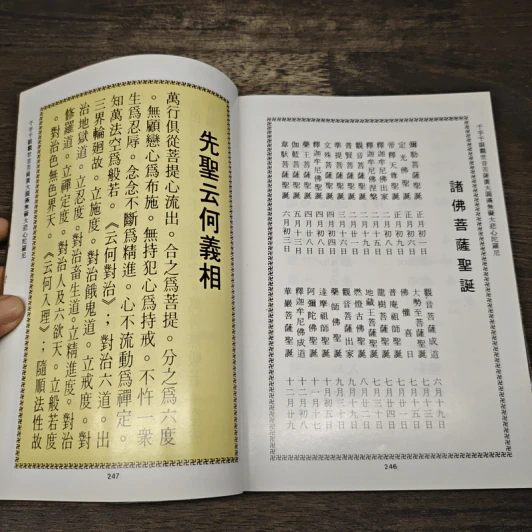 千手千眼觀世音菩薩廣大圓滿無礙大悲心陀羅尼
諸佛菩薩聖誕
彌勒菩薩聖誕 正月初一
定光佛聖誕 正月初六
帝釋天尊聖誕 正月初九
釋迦牟尼佛出家 二月初八
釋迦牟尼佛涅槃 二月十五
觀音菩薩聖誕 二月十九
普賢菩薩聖誕 二月廿一
準提菩薩聖誕 三月十六
文殊菩薩聖誕 四月初四
釋迦牟尼佛聖誕 四月初八
藥王菩薩聖誕 四月廿八
伽藍菩薩聖誕 五月十三
韋馱菩薩聖誕 六月初三
觀音菩薩成道 六月十九
大勢至菩薩聖誕 七月十三
佛 日 七月十五
普庵祖師聖誕 七月廿一
龍樹菩薩聖誕 七月廿四
地藏王菩薩聖誕 七月三十
燃燈古佛聖誕 八月廿二
觀音菩薩出家 九月十九
藥師佛聖誕 九月三十
達摩祖師聖誕 十月初五
阿彌陀佛聖誕 十一月十七
釋迦牟尼佛成道 十二月初八
華嚴菩薩聖誕 十二月廿九
246
先聖云何義相
萬行俱從菩提心流出。合之為菩提。分之為六度
。無顧戀心為布施。無持犯心為持戒。不忤一衆
生為忍辱。念念不斷為精進。心不流動為禪定。
知萬法空為般若。《云何對治》；對治六道。出
三界輪迴故。立施度。對治餓鬼道。立戒度。對
治地獄道。立忍度。對治畜生道。立精進度。對治
修羅道。立禪定度。對治人及六欲天。立般若度
。對治色無色界天。《云何入理》；隨順法性故
千手千眼觀世音菩薩廣大圓滿無礙大悲心陀羅尼
247